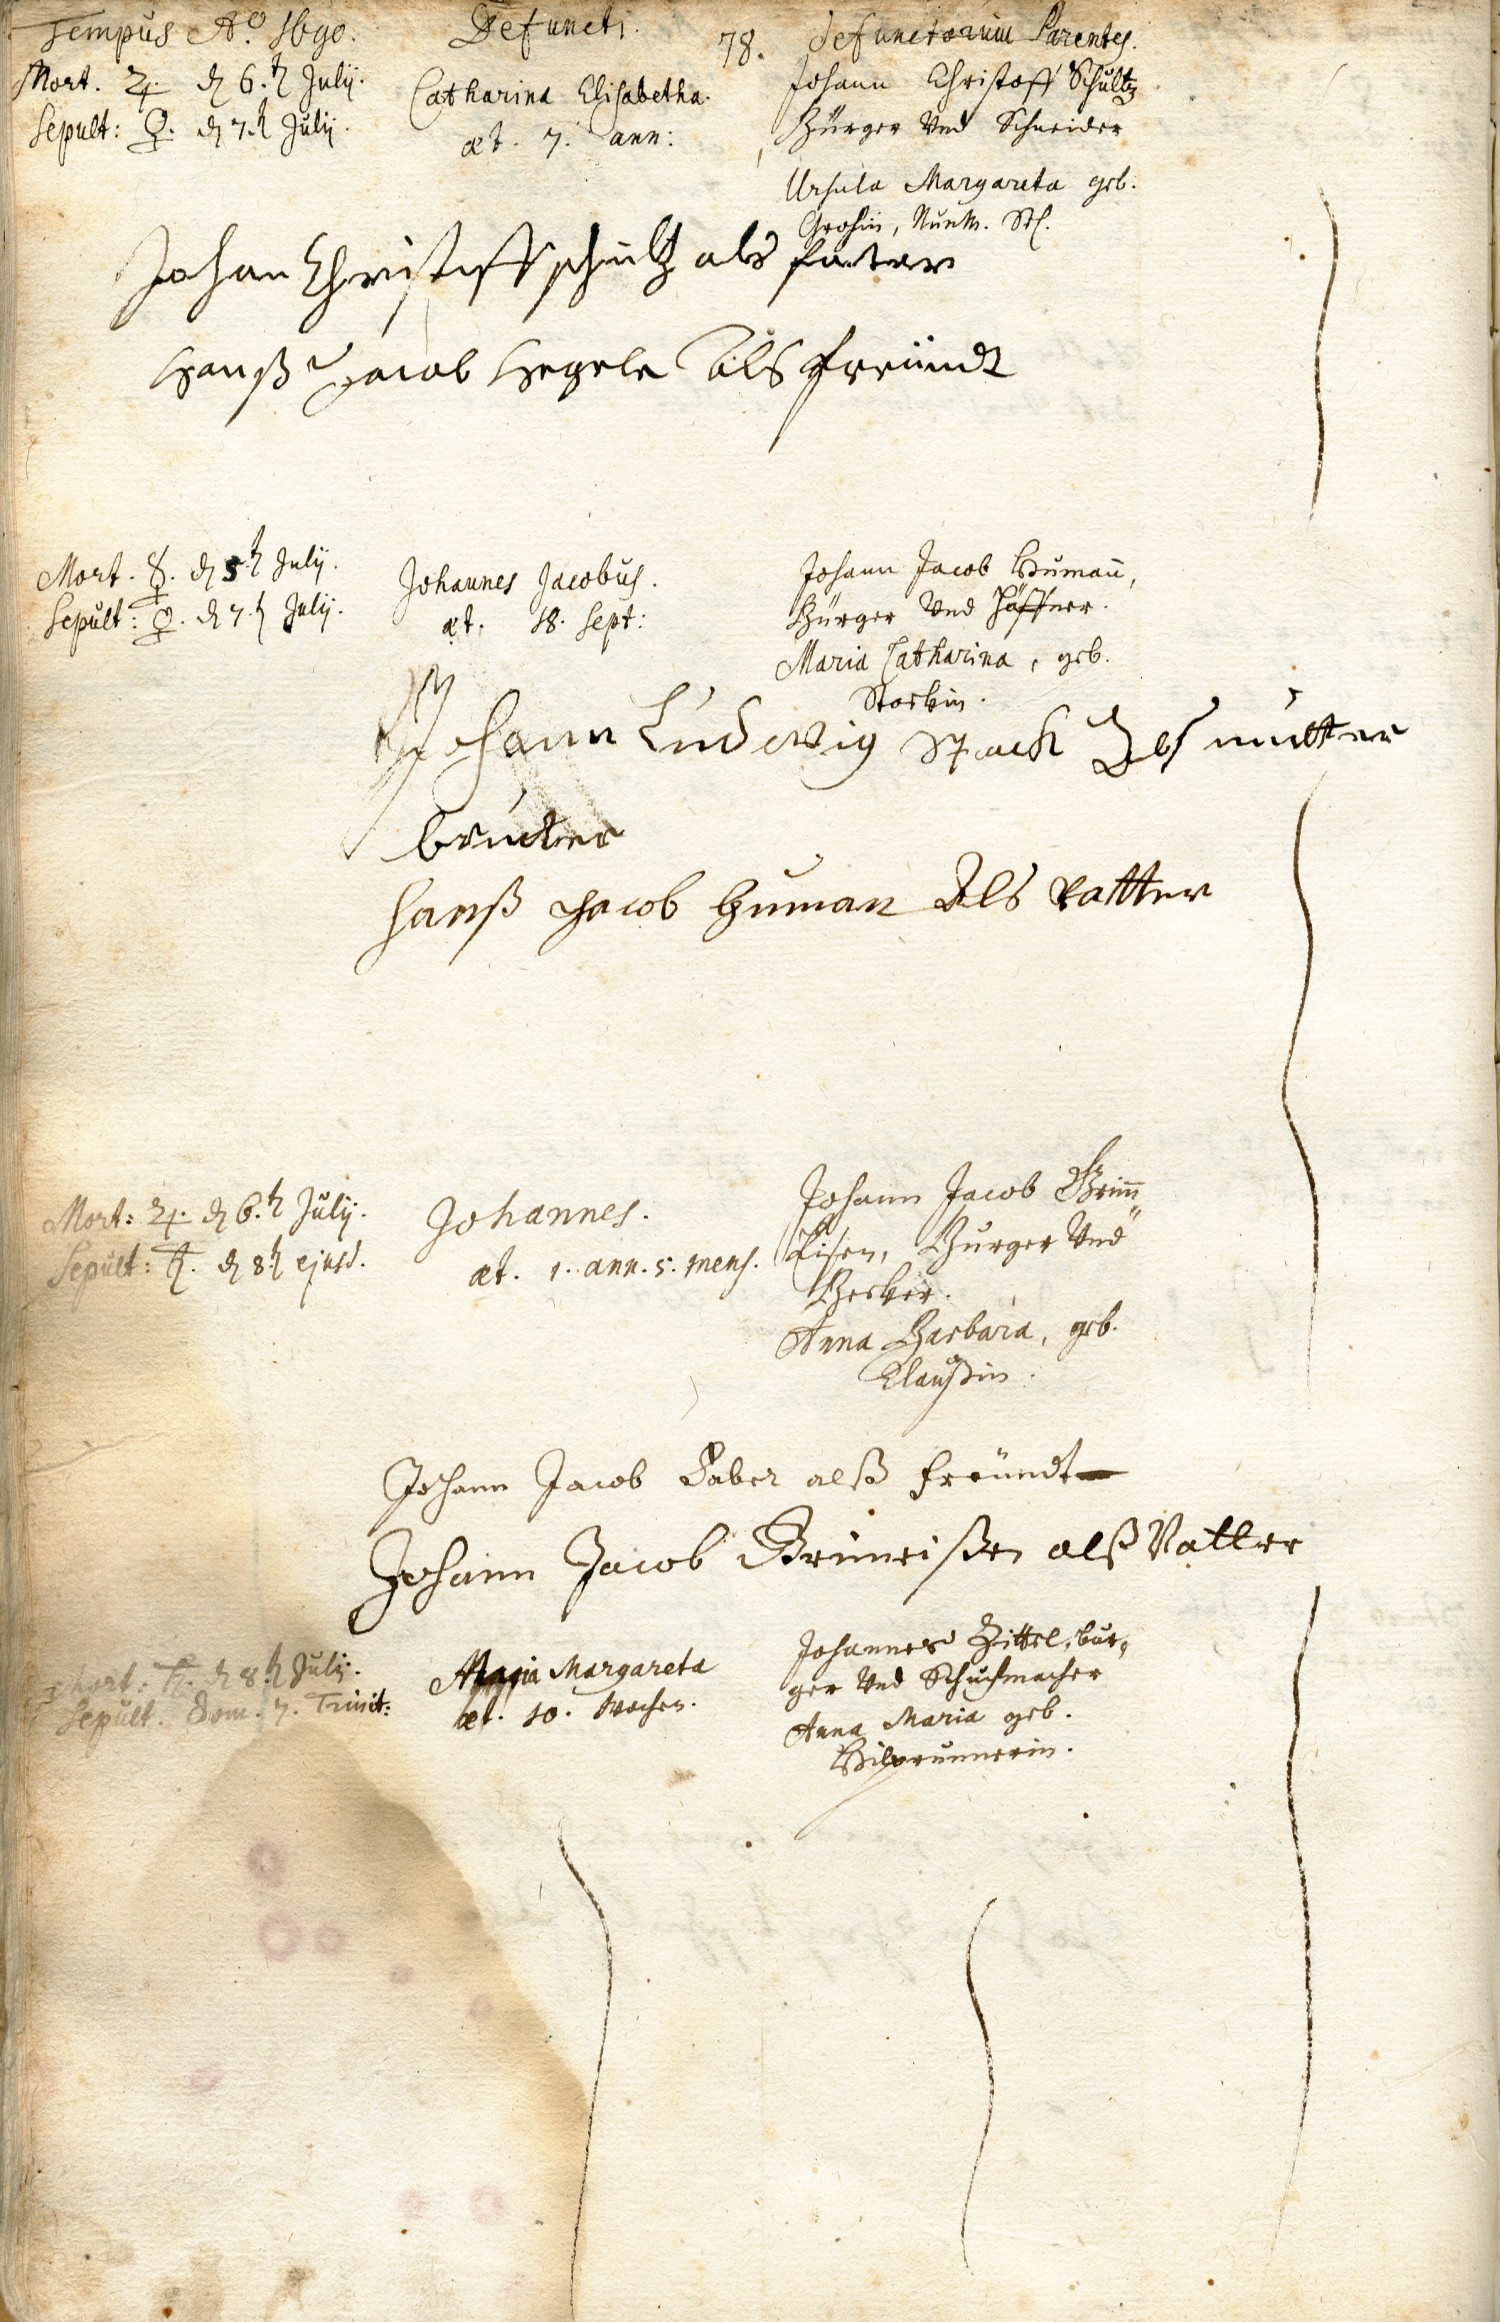 Tempus Aº. 1690. Defuncti. 78. Defunctorum Parentes.
Mort. ♃. d 6.t July. Catharina Elisabetha. Johann Christoff Schultz
Sepult: ♀. d 7.t July. æt. 7. ann: Bürger Vnd Schneider
Ursula Margareta geb.
Johan Christoff schultz als fatter
Hanß Jacob Hegele Als freündt
Mort. ☿. d 5.t July. Johannes Jacobus. Johann Jacob Human,
Sepult: ♀. d 7.t July. æt. 18. sept: Bürger Vnd Häffner.
Maria Catharina, geb.
Storkin.
Johann Ludewig Storck des mutter
bruder
Hanß Jacob Human Als Vatter
Mort: ♃. d 6.t July. Johannes. Johann Jacob Grün
Sepult: ♄. d 8.t ejusd. æt. 1. ann. 5. mens. Eisen, Burger Vnd
Becker.
Anna Barbara, geb.
Claußin.
Johann Jacob Daber alß freündt
Johann Jacob Grüneisen alß Vatter
Mort: ♄. d 8.t July. Maria Margareta Johannes Zittel, bur,
Sepult. Dom. 7. Trinit: æt. 10. Wochen. ger Vnd Schuhmacher
Anna Maria geb.